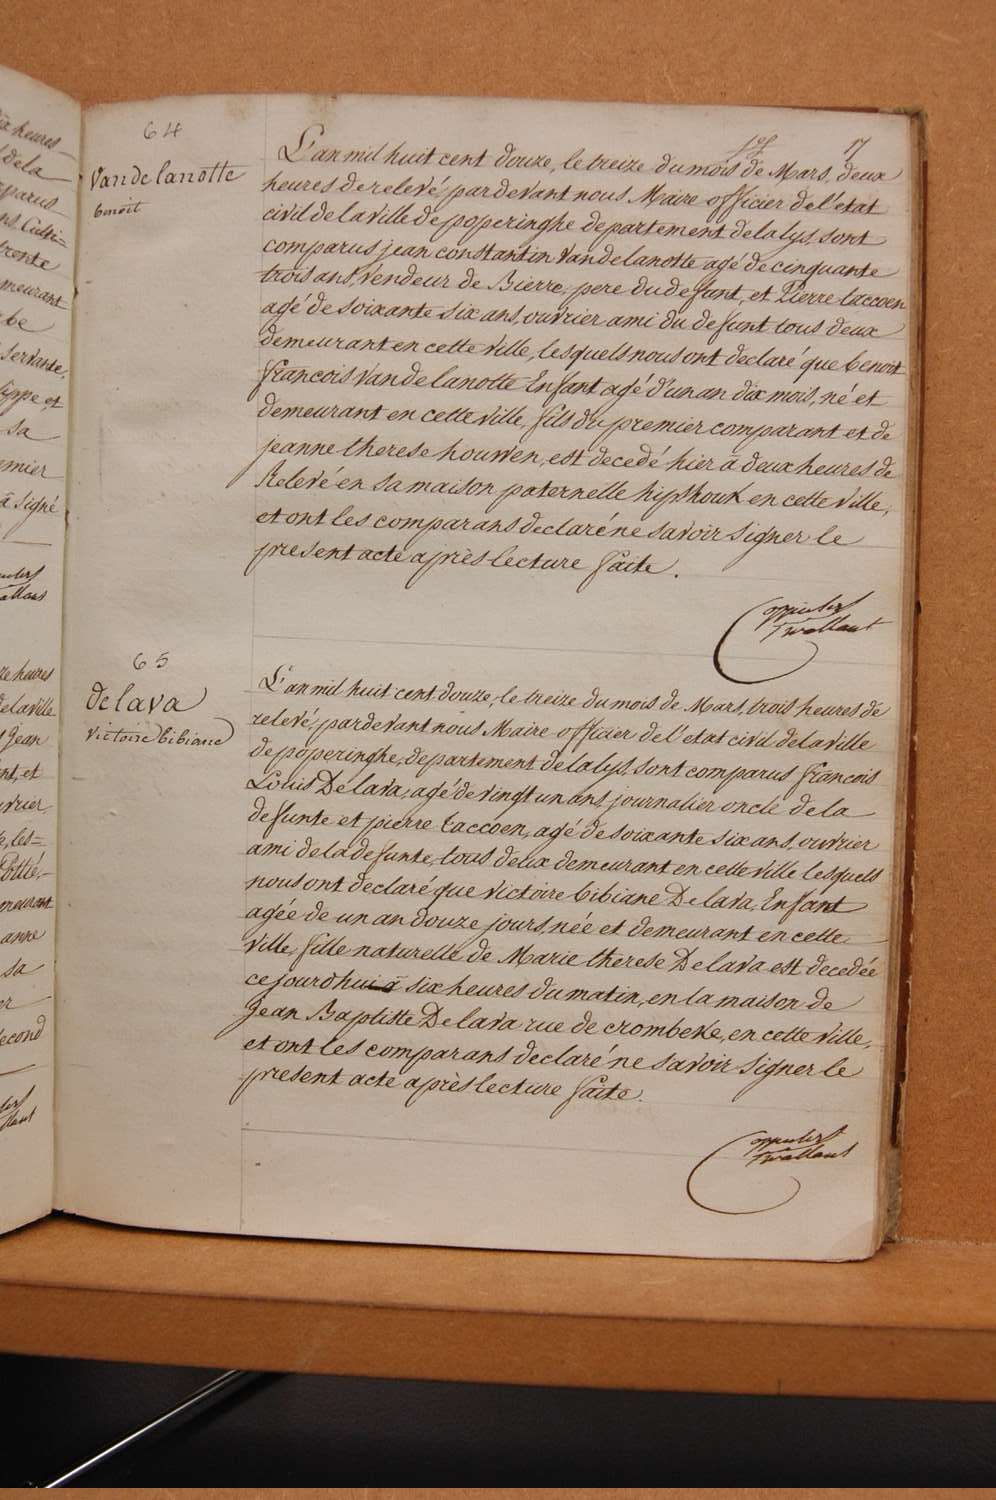 64
Vandelanotte
benoit
17
L'an mil huit cent douze, le treize du mois de Mars, deux
heures de relevé, pardevant nous Maire officier de l'etat
civil de la ville de poperinghe departement de la lys, sont
comparus jean constantin Vandelanotte agé de cinquante
trois ans, vendeur de Bierre, pere du defunt, et Pierre taccoen
agé de soixante six ans, ouvrier ami du defunt tous deux
demeurant en cette ville, lesquels nous ont declaré que benoit
francois Vandelanotte Enfant agé d'un an dix mois, né et
demeurant en cette ville, fils du premier comparant et de
jeanne therese houwen, est decedé hier à deux heures de
Relevé en sa maison paternelle hipshouk en cette ville,
et ont les comparans declaré ne savoir signer le
present acte après lecture faite.
65
Delava
victoire bibiane
L'an mil huit cent douze, le treize du mois de Mars, trois heures de
relevé, pardevant nous Maire officier de l'etat civil de la ville
de poperinghe, departement de la lys, sont comparus francois
Louis Delava, agé de vingt un ans, journalier oncle de la
defunte et pierre taccoen, agé de soixante six ans, ouvrier
ami de la defunte, tous deux demeurant en cette ville lesquels
nous ont declaré que victoire bibiane Delava, Enfant
agée de un an douze jours, née et demeurant en cette
ville, fille naturelle de Marie therese Delava est decedée
cejourdhui à six heures du matin, en la maison de
Jean Baptiste Delava rue de crombeke, en cette ville,
et ont les comparans declaré ne savoir signer le
present acte après lecture faite.